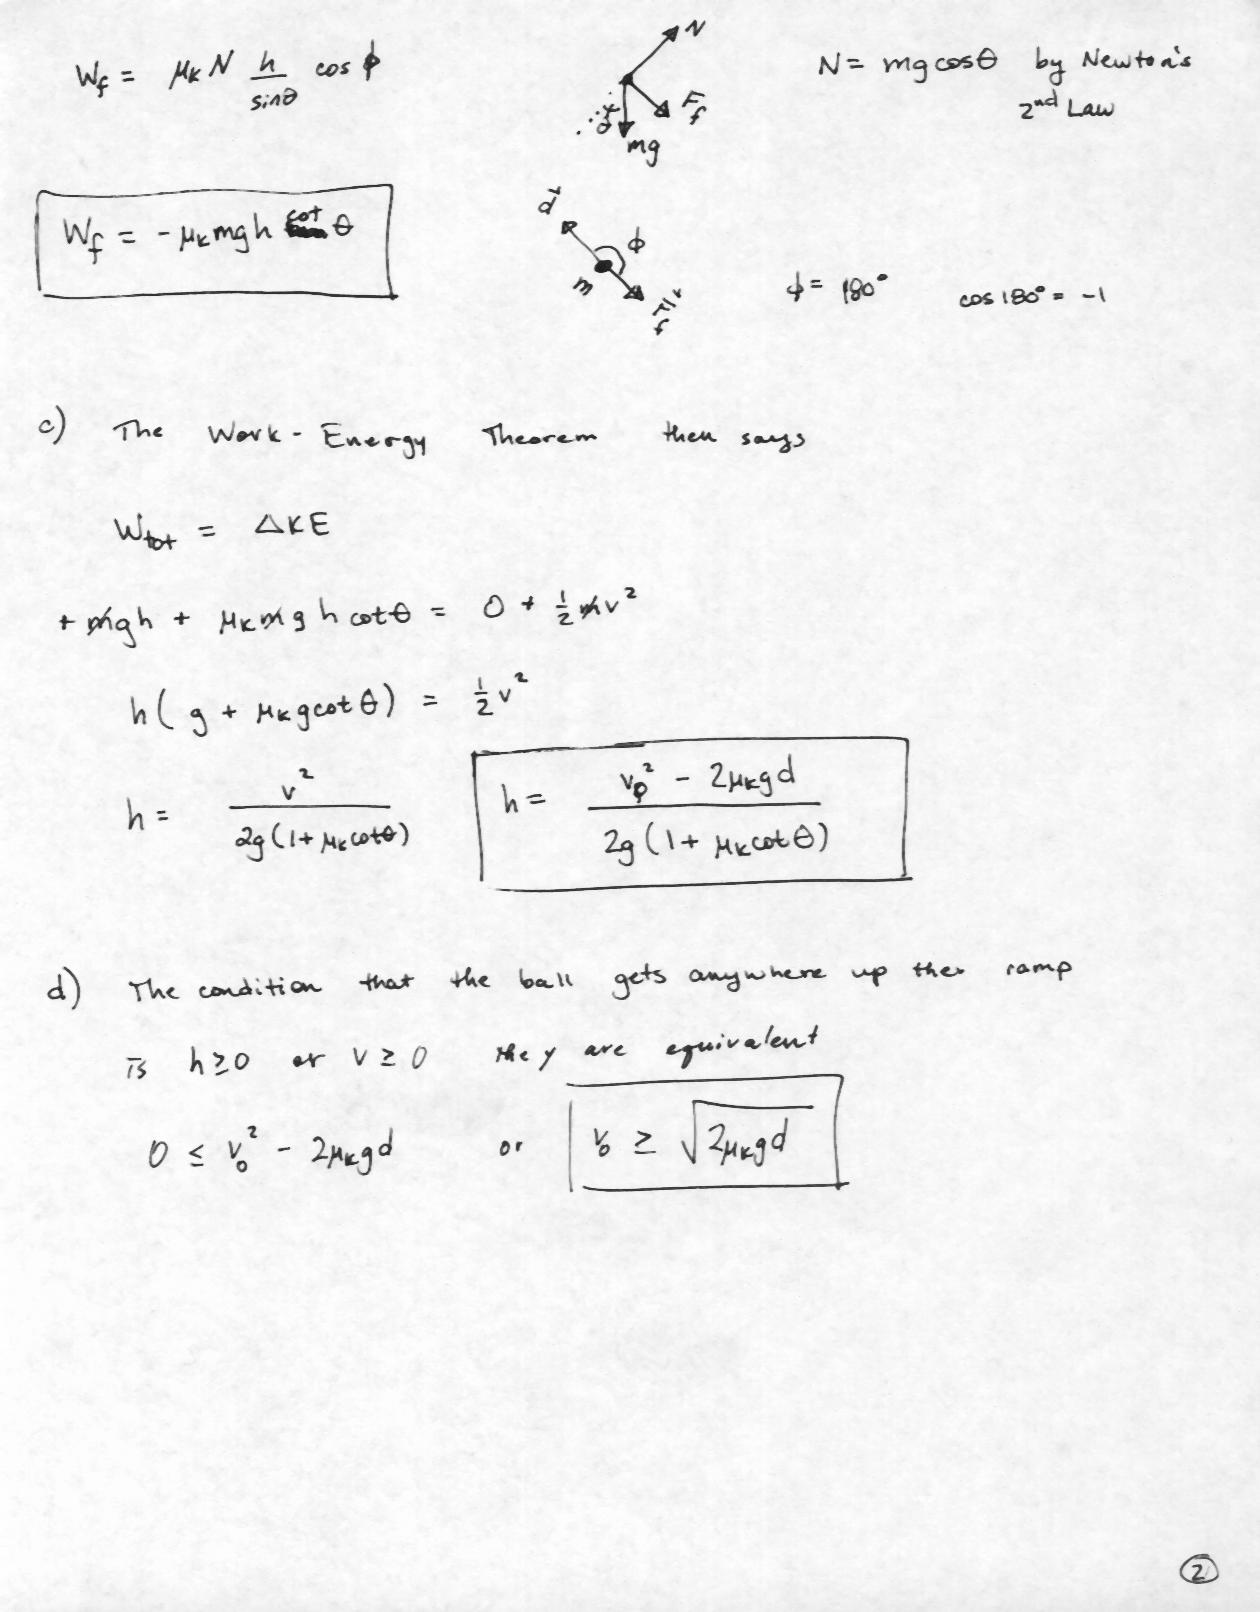 W_f = μ_K N h/sinθ cos φ
N
F_f
θ
mg
N = mg cosθ by Newton's
2nd Law
W_f = -μ_K mgh cot θ
d
φ
m
F_f
φ = 180° cos 180° = -1
c) The Work-Energy Theorem then says
W_tot = ΔKE
+ mgh + μ_K mg h cotθ = 0 + 1/2 mv²
h( g + μ_K g cot θ) = 1/2 v²
h = v² / 2g(1 + μ_K cotθ)
h = v_0² - 2μ_K gd / 2g(1 + μ_K cotθ)
d) The condition that the ball gets anywhere up the ramp
is h ≥ 0 or v ≥ 0 they are equivalent
0 ≤ v_0² - 2μ_K gd or v_0 ≥ √2μ_K gd
2